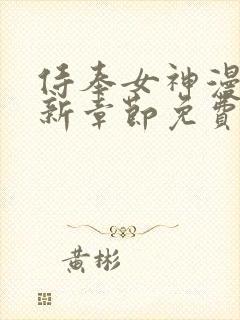 侍奉女神漫
新章節免費
黃彬